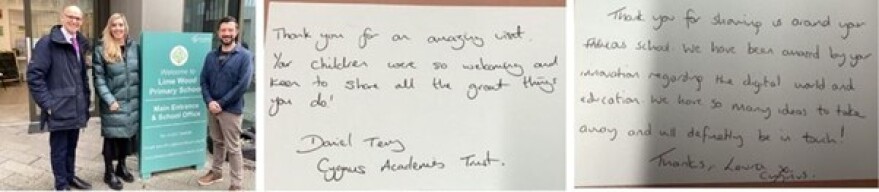 Welcome to
Lime Wood
Primary School
Main Entrance
& School Office
Thank you for an amazing visit.
Your children were so welcoming and
keen to share all the great things
you do!
Daniel Terry
Cygnus Academies Trust.
Thank you for showing us around your
fabulous school. We have been amazed by your
innovation regarding the digital world and
education. We have so many ideas to take
away and will definetly be in touch!
Thanks, Laura x
Cygnus.